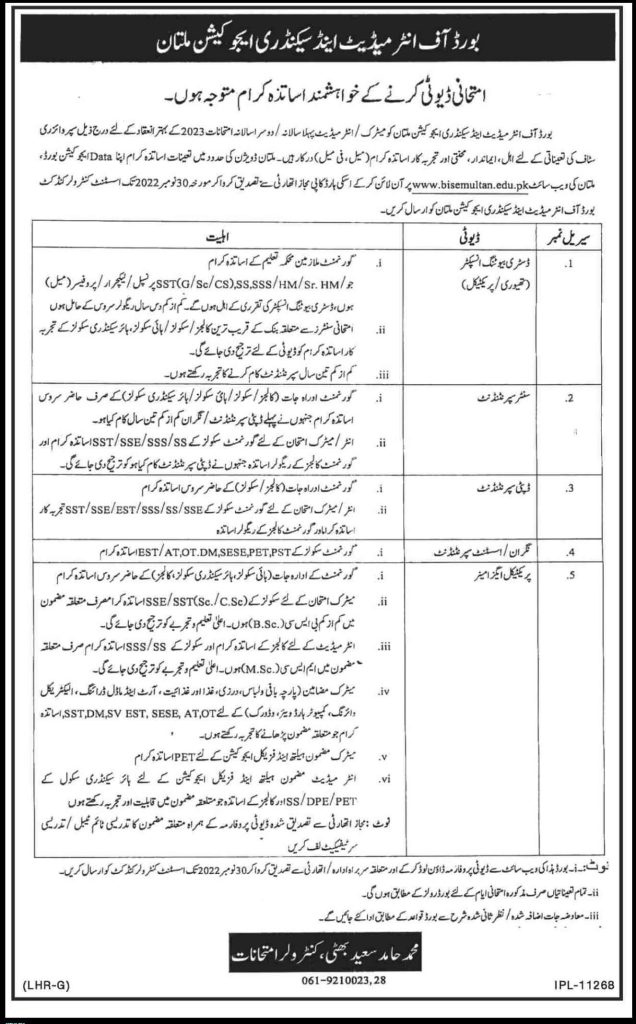 بورڈ آف انٹرمیڈیٹ اینڈ سیکنڈری ایجوکیشن ملتان
امتحانی ڈیوٹی کرنے کے خواہشمند اساتذہ کرام متوجہ ہوں۔
بورڈ آف انٹرمیڈیٹ اینڈ سیکنڈری ایجوکیشن ملتان کو میٹرک/انٹرمیڈیٹ پہلا سالانہ/دوسرا سالانہ امتحانات 2023 کے بہتر انعقاد کے لئے درج ذیل سپروائزری
سٹاف کی تعیناتی کے لئے اہل، ایماندار، محنتی اور تجربہ کار اساتذہ کرام (میل، فی میل) درکار ہیں۔ ملتان ڈویژن کی حدود میں تعینات اساتذہ کرام اپنا Data ایجوکیشن بورڈ،
ملتان کی ویب سائٹ www.bisemultan.edu.pk پر آن لائن کر کے اسکی ہارڈ کاپی مجاز اتھارٹی سے تصدیق کروا کر مورخہ 30 نومبر 2022 تک اسسٹنٹ کنٹرولر کنڈکٹ
بورڈ آف انٹرمیڈیٹ اینڈ سیکنڈری ایجوکیشن ملتان کو ارسال کریں۔
سیریل نمبر ڈیوٹی اہلیت
1. ڈسٹری بیوٹنگ انسپکٹر i. گورنمنٹ ملازمین محکمہ تعلیم کے اساتذہ کرام
(تھیوری/پریکٹیکل) جو SST(G/Sc/CS),SS,SSS/HM/Sr. HM/پرنسپل/لیکچرار/پروفیسر (میل)
ہوں، ڈسٹری بیوٹنگ انسپکٹر کی تقرری کے اہل ہوں گے۔ کم از کم دس سال ریگولر سروس کے حامل ہوں
ii. امتحانی سنٹرز سے متعلقہ بنک کے قریب ترین کالجز/سکولز/ہائی سکولز، ہائر سیکنڈری سکولز کے تجربہ
کار اساتذہ کرام کو ڈیوٹی کے لئے ترجیح دی جائے گی۔
iii. کم از کم تین سال سپرنٹنڈنٹ کام کرنے کا تجربہ رکھتے ہوں۔
2. سنٹر سپرنٹنڈنٹ i. گورنمنٹ اور اہ جات (کالجز/سکولز/ہائی سکولز/ہائر سیکنڈری سکولز) کے صرف حاضر سروس
اساتذہ کرام جنہوں نے پہلے ڈپٹی سپرنٹنڈنٹ/نگران کم از کم تین سال کام کیا ہو۔
ii. انٹر/میٹرک امتحان کے لئے گورنمنٹ سکولز کے SST/SSE/SSS/SS اساتذہ کرام اور
گورنمنٹ کالجز کے ریگولر اساتذہ جنہوں نے ڈپٹی سپرنٹنڈنٹ کام کیا ہو کو ترجیح دی جائے گی۔
3. ڈپٹی سپرنٹنڈنٹ i. گورنمنٹ اور اہ جات (کالجز/سکولز) کے حاضر سروس اساتذہ کرام
ii. انٹر/میٹرک امتحان کے لئے گورنمنٹ سکولز کے SST/SSE/EST/SSS/SS/SSE تجربہ کار
اساتذہ کرام اور گورنمنٹ کالجز کے ریگولر اساتذہ
4. نگران/اسسٹنٹ سپرنٹنڈنٹ i. گورنمنٹ سکولز کے EST/AT,OT.DM,SESE,PET,PST اساتذہ کرام
5. پریکٹیکل ایگزامینر i. گورنمنٹ کے ادارہ جات (ہائی سکولز، ہائر سیکنڈری سکولز، کالجز) کے حاضر سروس اساتذہ کرام
ii. میٹرک امتحان کے لئے سکولز کے SSE/SST(Sc./C.Sc) اساتذہ کرام صرف متعلقہ مضمون
میں کم از کم بی ایس سی (B.Sc.) ہوں۔ اعلیٰ تعلیم و تجربے کو ترجیح دی جائے گی۔
iii. انٹرمیڈیٹ کے لئے کالجز کے اساتذہ کرام اور سکولز کے SSS/SS اساتذہ کرام صرف متعلقہ
مضمون میں ایم ایس سی (M.Sc.) ہوں۔ اعلیٰ تعلیم و تجربے کو ترجیح دی جائے گی۔
iv. میٹرک مضامین (پارچہ بافی ولباس، درزی، غذا اور غذائیت، آرٹ اینڈ ماڈل ڈرائنگ، الیکٹریکل
وائرنگ، کمپیوٹر ہارڈ ویئر، وڈ ورک) کے لئے SST,DM,SV EST, SESE, AT,OT، اساتذہ
کرام جو متعلقہ مضمون پڑھانے کا تجربہ رکھتے ہوں۔
v. میٹرک مضمون ہیلتھ اینڈ فزیکل ایجوکیشن کے لئے PET اساتذہ کرام
vi. انٹرمیڈیٹ مضمون ہیلتھ اینڈ فزیکل ایجوکیشن کے لئے ہائر سیکنڈری سکول کے
SS/DPE/PET اور کالجز کے اساتذہ جو متعلقہ مضمون میں قابلیت اور تجربہ رکھتے ہوں
نوٹ: مجاز اتھارٹی سے تصدیق شدہ ڈیوٹی پروفارمہ کے ہمراہ متعلقہ مضمون کا تدریسی ٹائم ٹیبل/تدریسی
سرٹیفکیٹ لف کریں
نوٹ:۔ i۔ بورڈ ہذا کی ویب سائٹ سے ڈیوٹی پروفارمہ ڈاؤن لوڈ کر کے اور متعلقہ سربراہ ادارہ/اتھارٹی سے تصدیق کروا کر 30 نومبر 2022 تک اسسٹنٹ کنٹرولر کنڈکٹ کو ارسال کریں۔
ii۔ تمام تعیناتیاں صرف مذکورہ امتحانی ایام کے لئے بورڈ رولز کے مطابق ہوں گی۔
iii۔ معاوضہ جات اضافہ شدہ/نظر ثانی شدہ شرح سے بورڈ قواعد کے مطابق ادا کئے جائیں گے۔
محمد حامد سعید بھٹی، کنٹرولر امتحانات
061-9210023,28
(LHR-G) IPL-11268